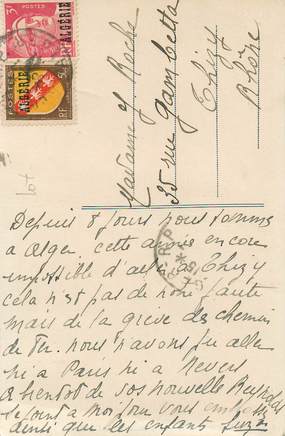 3F
POSTES
RF
ALGÉRIE
POSTES
RF
ALGÉRIE
Madame J Roche
35 rue Gambetta
Thizy
Rhône
lot
Depuis 8 jours nous sommes
a alger cette année encore
impossible d'aller a Thizy
cela n'est pas de notre faute
mais de la greve des chemin
de fer. nous n'avons pu aller
ni a Paris ni a Nevers
a bientot de vos nouvelle Reynolds
se joint a moi pour vous embrasser
ainsi que les enfants